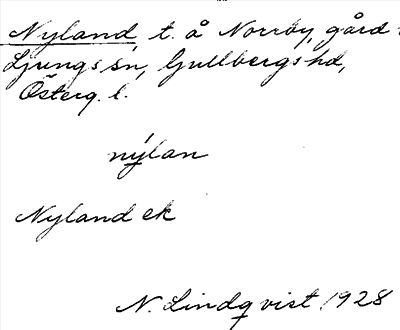 Nyland, t. å Norröy, gård
Ljungs sn, Gullbergs hd,
Österg. l.
nýlan
Nyland ek
N. Lindqvist 1928